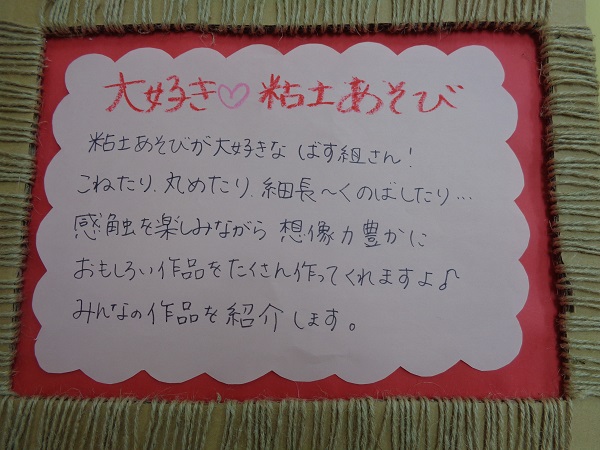 大好き♡粘土あそび
粘土あそびが大好きな ばす組さん!
こねたり、丸めたり、細長〜くのばしたり…
感触を楽しみながら 想像力豊かに
おもしろい作品をたくさん作ってくれますよ♪
みんなの作品を紹介します。